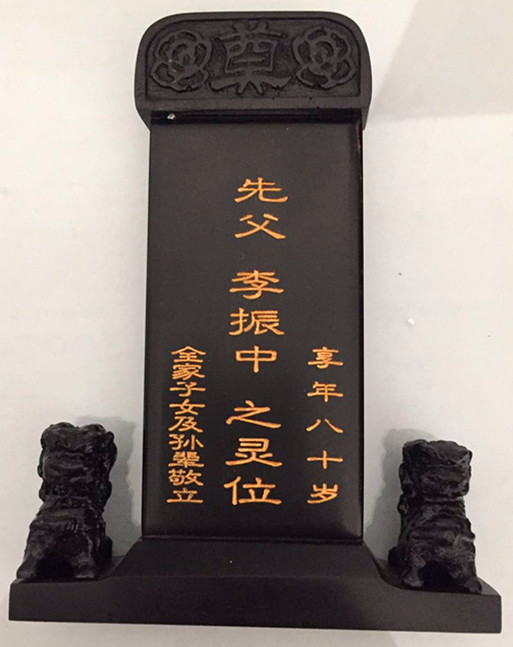 奠
享年八十岁
先父 李振中 之灵位
全家子女及孙辈敬立